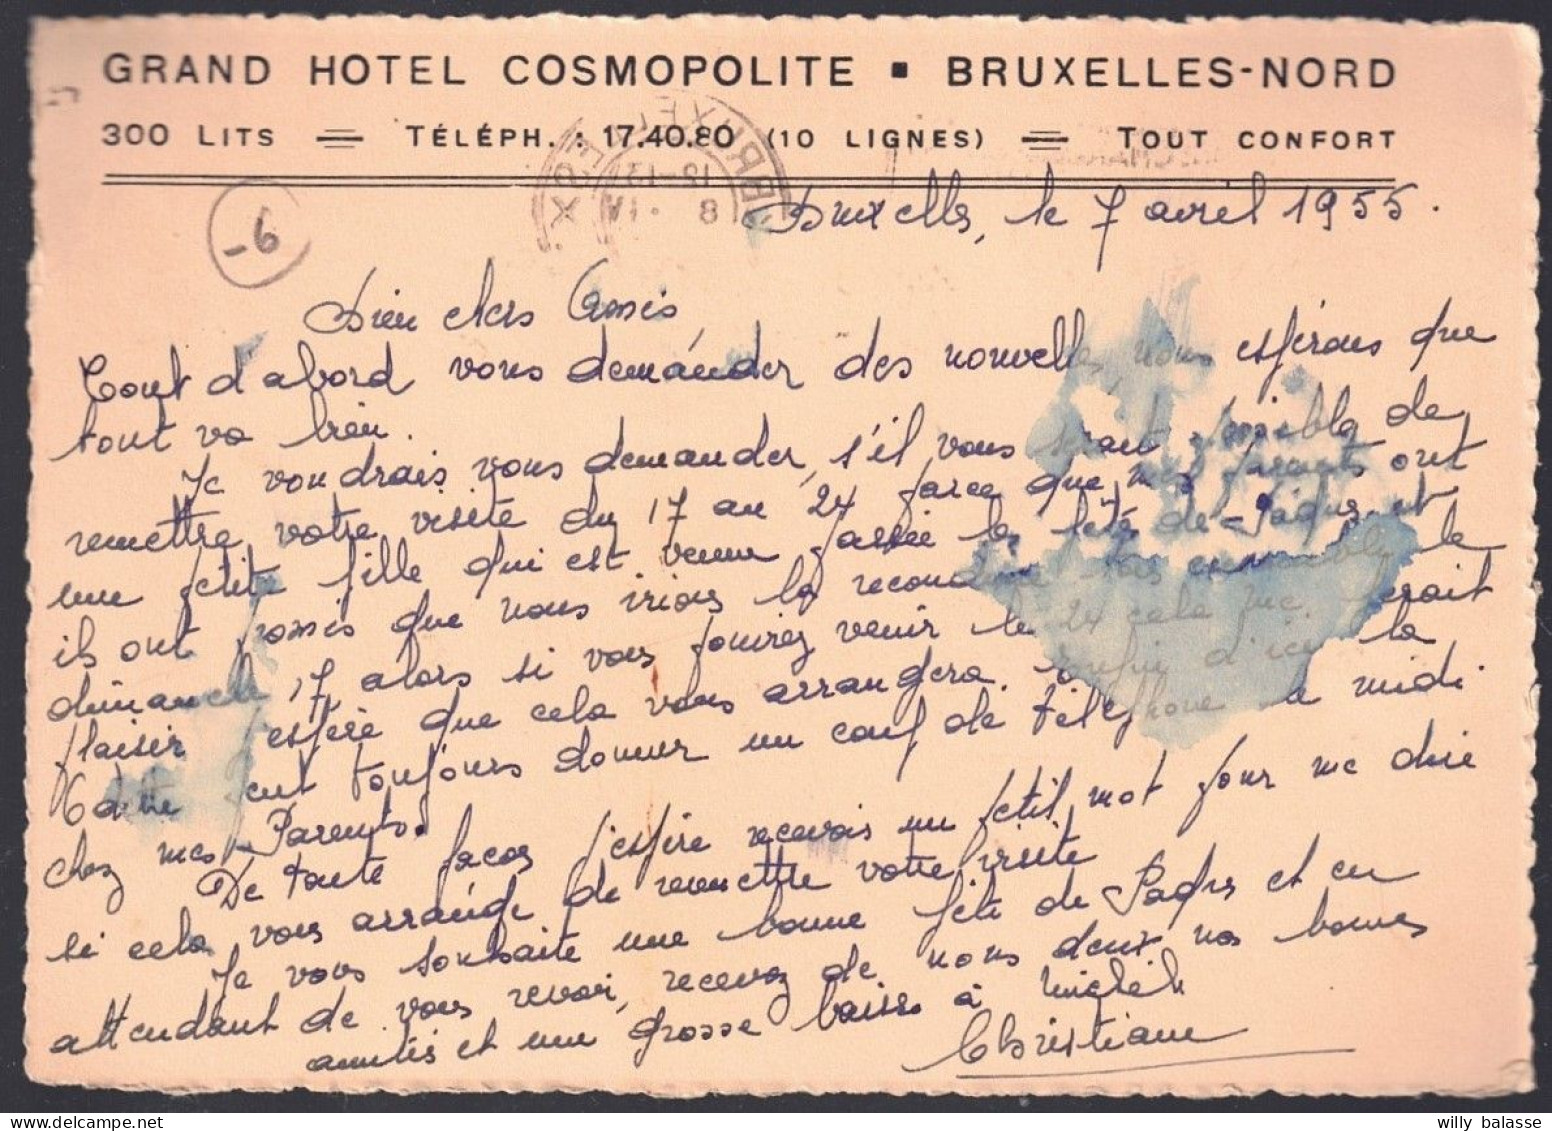 GRAND HOTEL COSMOPOLITE ▪ BRUXELLES-NORD
300 LITS = TÉLÉPH. : 17.40.80 (10 LIGNES) = TOUT CONFORT
BRUXELLES X
18-19
8 . IV
-6
Bruxelles, le 7 avril 1955.
Bien chers Amis
Tout d'abord vous demander des nouvelles, nous espérons que
tout va bien.
Je voudrais vous demander, s'il vous serait possible de
remettre votre visite du 17 au 24 parce que mes parents ont
une petite fille qui est venue passée les fêtes de Pâques et
ils ont promis que nous irions la reconduire tous ensemble le
dimanche 17, alors si vous pouviez venir le 24 cela me ferait
plaisir j'espère que cela vous arrangera. Enfin d'ici là
Odette peut toujours donner un coup de téléphone le midi
chez mes Parents.
De toute façon j'espère recevoir un petit mot pour me dire
si cela vous arrange de remettre votre visite
Je vous souhaite une bonne fête de Pâques et en
attendant de vous revoir, recevez de nous deux nos bonnes
amitiés et une grosse baise à
Christiane
willy balasse